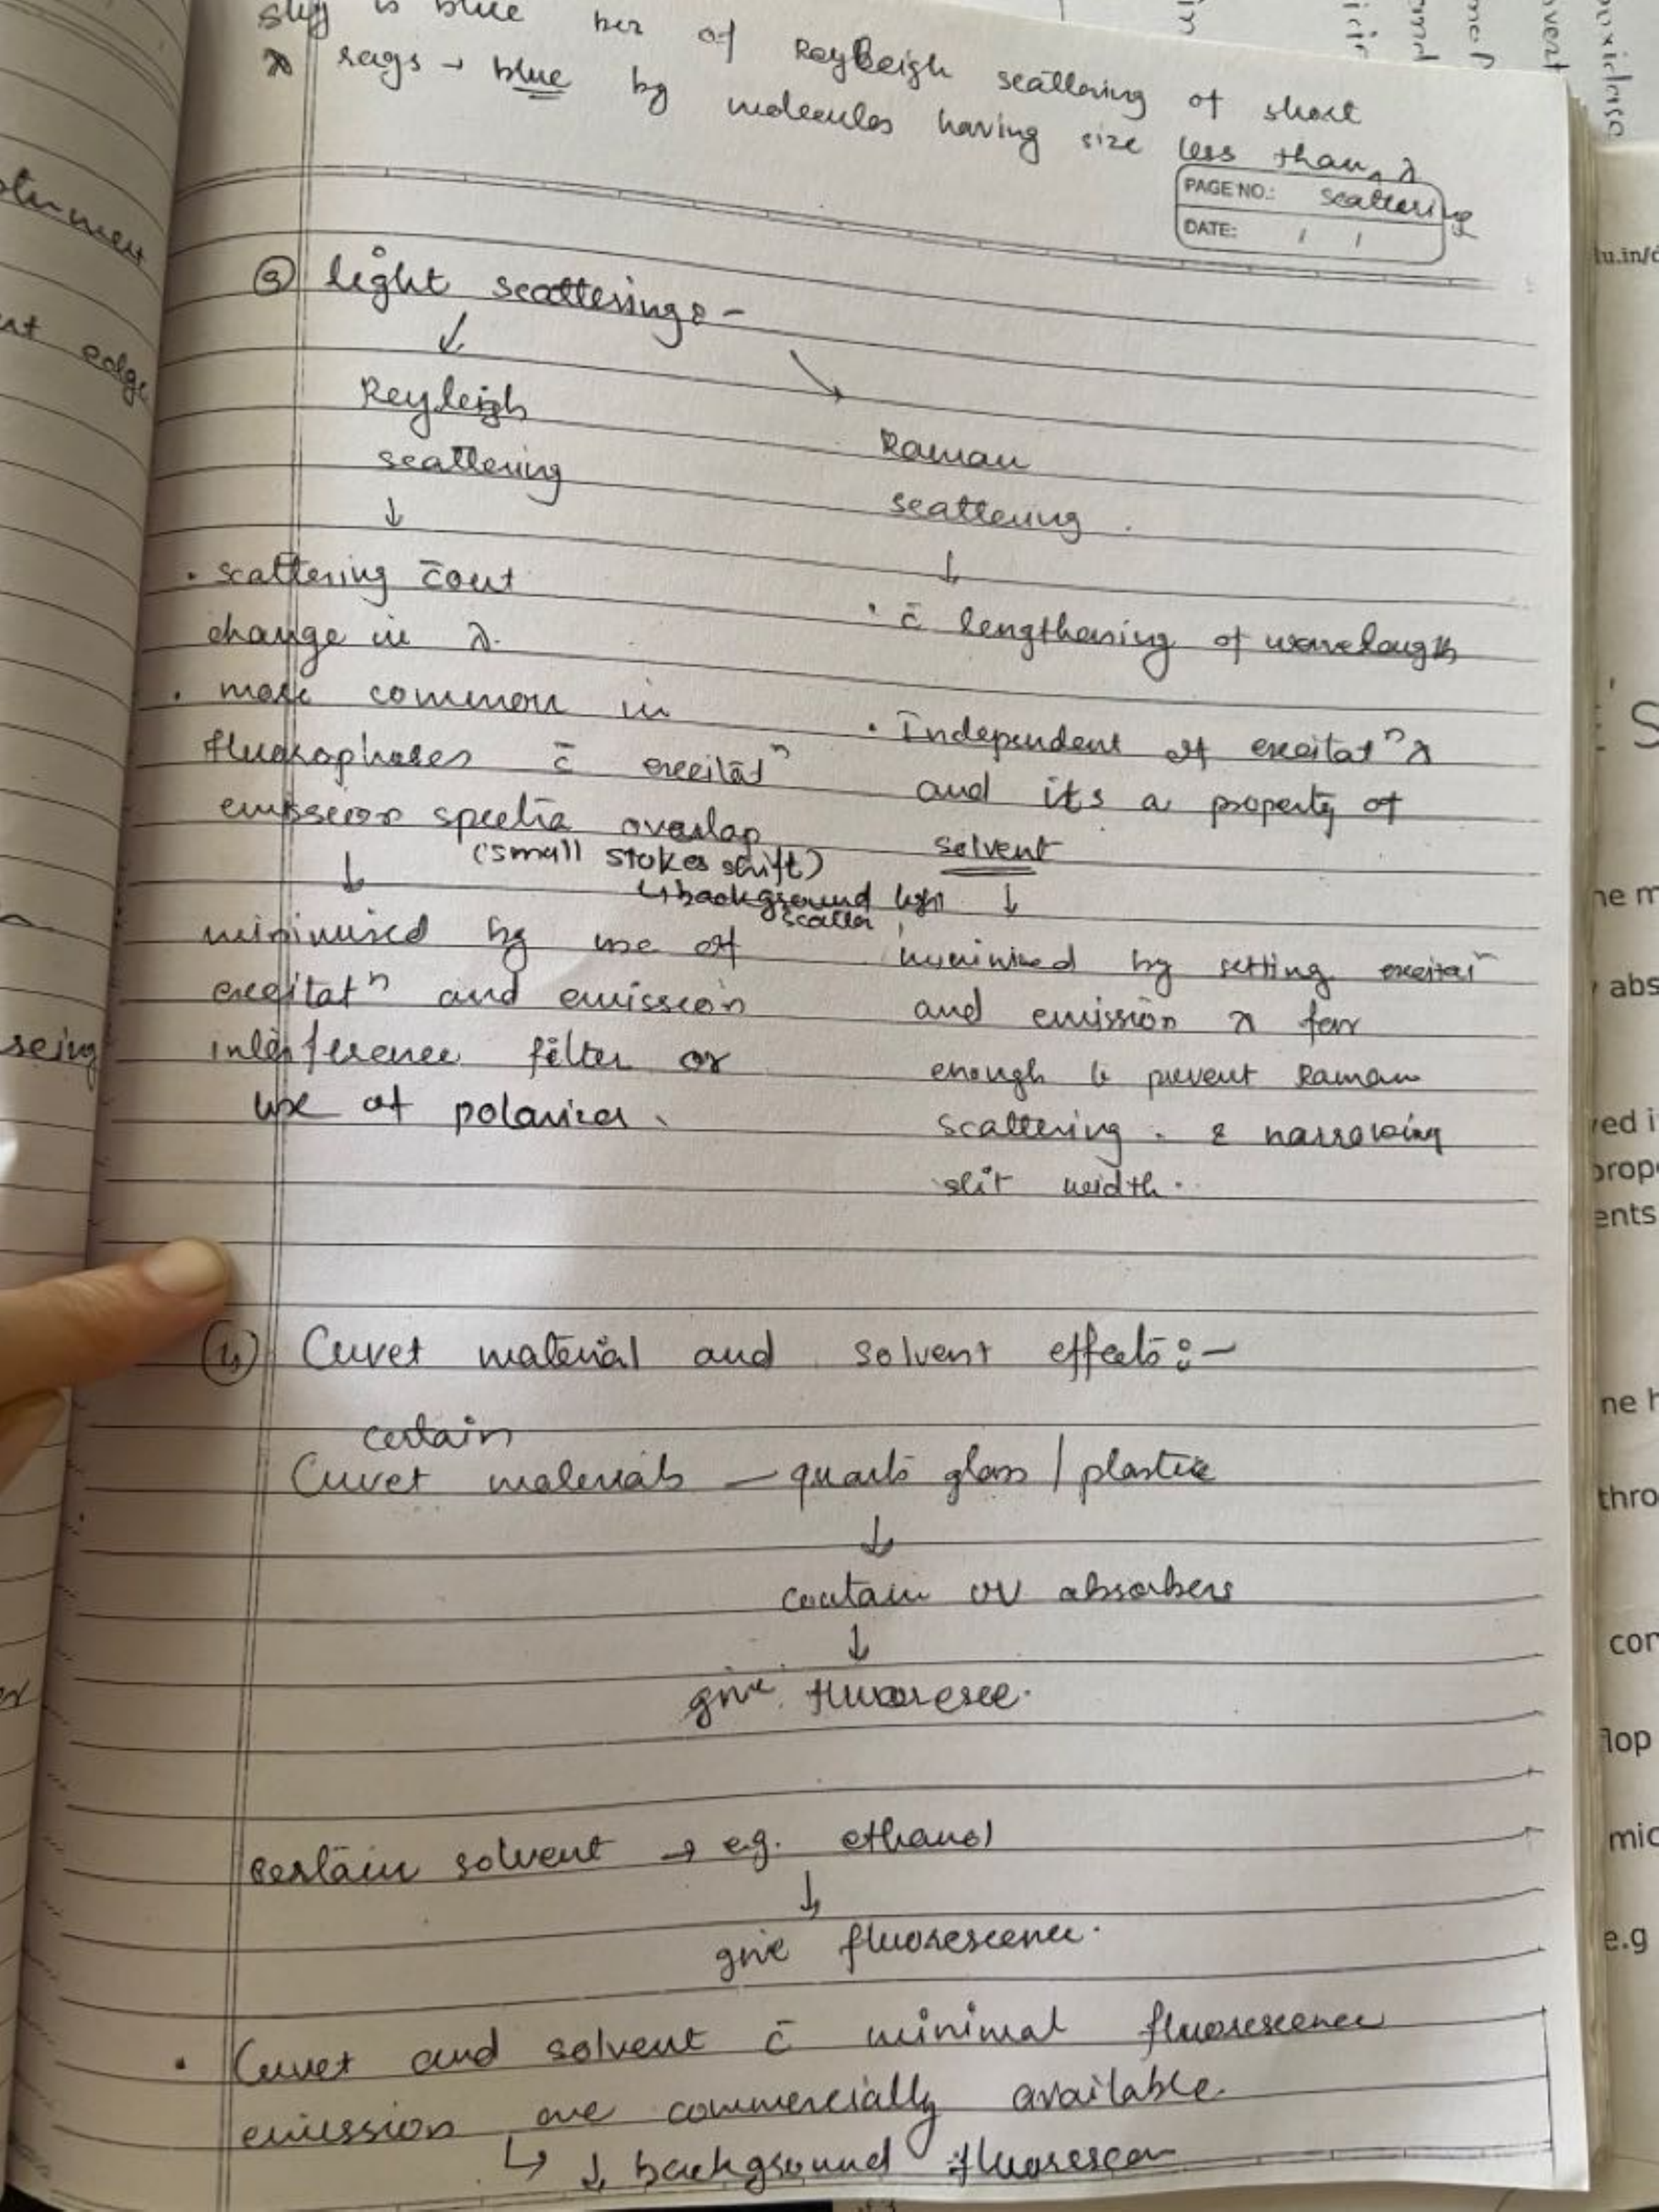 sky is blue bcz of Reyleigh scattering of short
λ rays → blue by molecules having size less than λ
PAGE NO.: scattering
DATE: / /
③ light scattering :-
Reyleigh
scattering
↓
• scattering c̄out
change in λ.
• more common in
fluorophores c̄ excitatⁿ
emission spectra overlap
(small stokes shift)
↳ background light
scatter
↓
minimised by use of
excitatⁿ and emission
interference filter or
use of polarizer.
Raman
scattering.
↓
• c̄ lengthening of wavelength
• Independent of excitatⁿ λ
and its a property of
solvent
↓
minimized by setting excitatⁿ
and emission λ far
enough to prevent Raman
scattering. & narrowing
slit width.
④ Cuvet material and solvent effects :-
certain
Cuvet materials — quartz glass / plastic
↓
contain UV absorbers
↓
give fluoresce.
certain solvent → eg. ethanol
↓
give fluorescence.
• Cuvet and solvent c̄ minimal fluorescence
emission are commercially available.
↳ ↓ background fluorescen
otument
nt edge
seing
lu.in/
S
he m
abs
ved i
prop
ents
ne h
thro
cor
mic
e.g